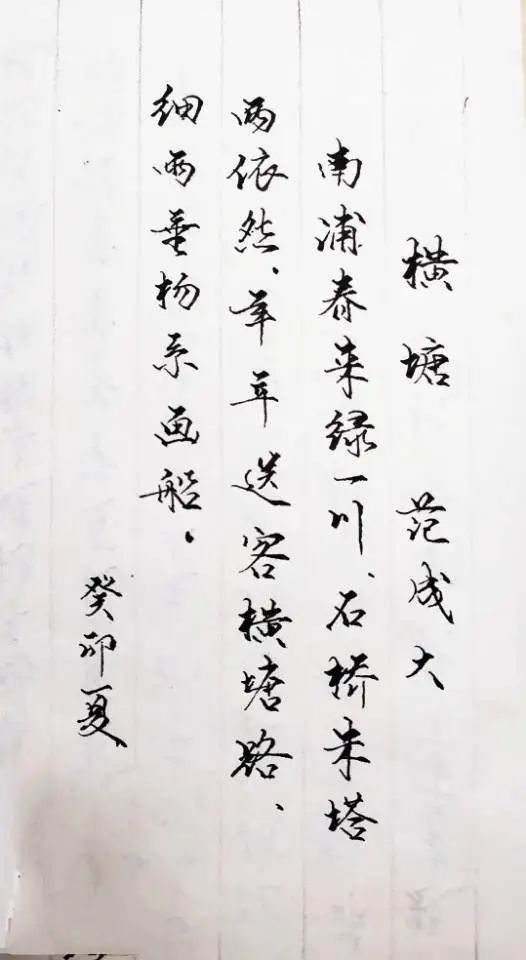 横塘 范成大
南浦春来绿一川、石桥朱塔
两依然、年年送客横塘路、
细雨垂杨系画船。
癸卯夏